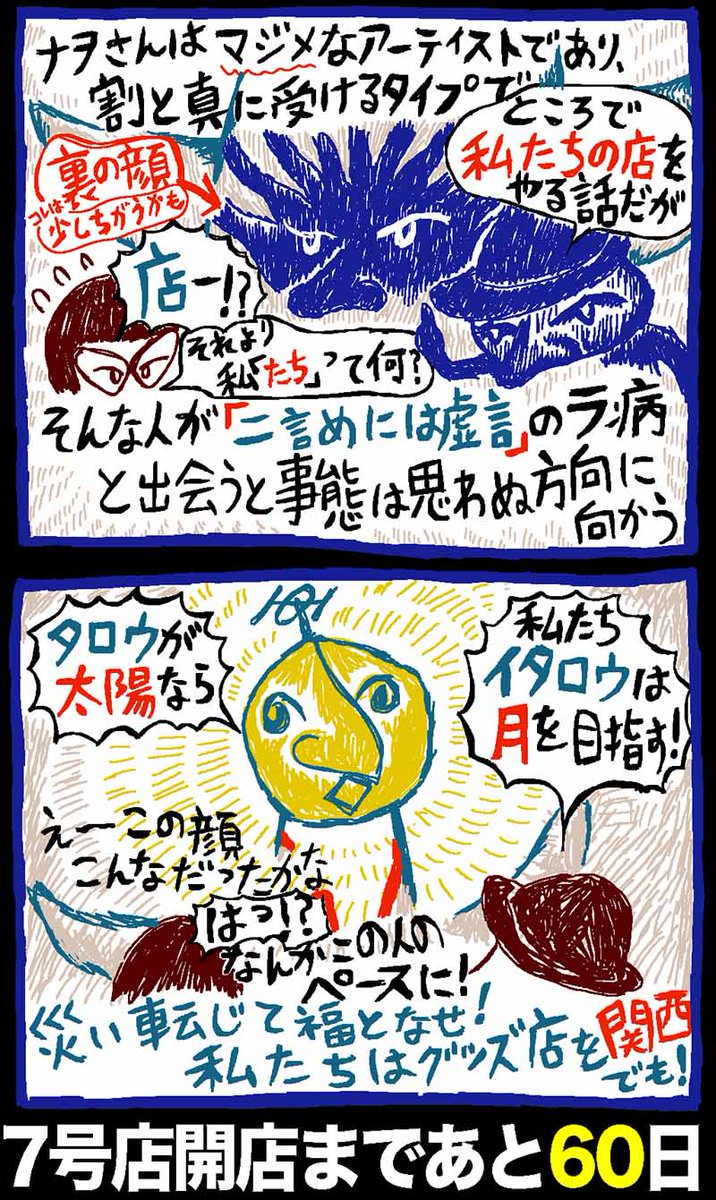 ナヲさんはマジメなアーティストであり、
割と真に受けるタイプで
ところで
私たちの店を
やる話だが
裏の顔
コレは
少しちがうかも
店ー!?
それより
私「たち」って何?
そんな人が「二言めには虚言」のラン病
と出会うと事態は思わぬ方向に
向かう
タロウが
太陽なら
私たち
イタロウは
月を目指す!
えーこの顔
こんなだったかな
はっ!?
なんかこの人の
ペースに!
災い転じて福となせ!
私たちはグッズ店を関西
でも!
7号店開店まであと60日